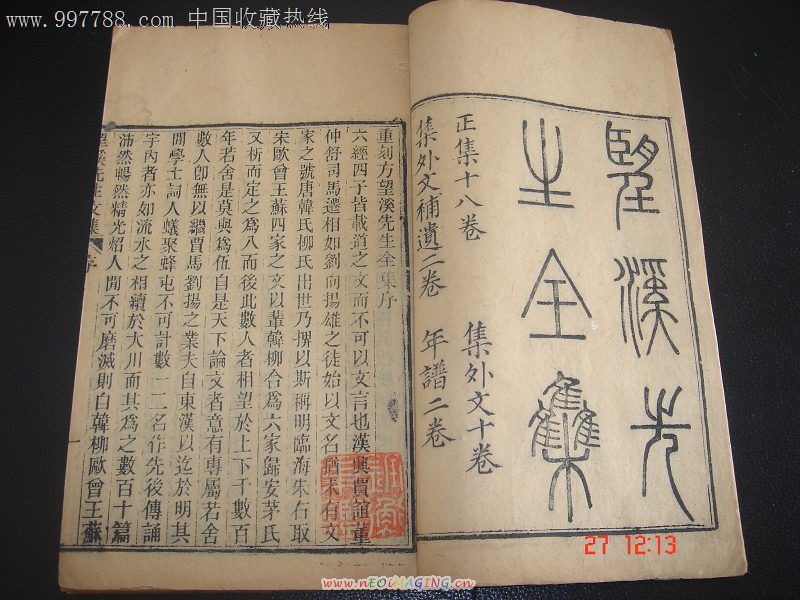 www.997788.com 中国收藏热线
望溪先
生全集
正集十八卷
集外文十卷
集外文補遺二卷
年譜二卷
重刻方望溪先生全集序
六經四子皆載道之文而不可以文言也漢興賈誼董
仲舒司馬遷相如劉向揚雄之徒始以文名猶未有文
家之號唐韓氏柳氏出世乃㩲以斯稱明臨海朱右取
宋歐曾王蘇四家之文以輩韓柳合爲六家歸安茅氏
又析而定之爲八而後此數人者相望於上下千數百
年若舍是莫與爲伍自是天下論文者意有專屬若舍
數人卽無以繼賈馬劉揚之業夫自東漢以迄於明其
閒學士詞人蟻聚蜂屯不可計數一二名作先後傳誦
宇內者亦如流水之相續於大川而其爲之數百十篇
沛然暢然精光炤人閒不可磨滅則自韓柳歐曾王蘇
望溪先生文集 序 一
27 12:13
www.nEOiMAGING.cn